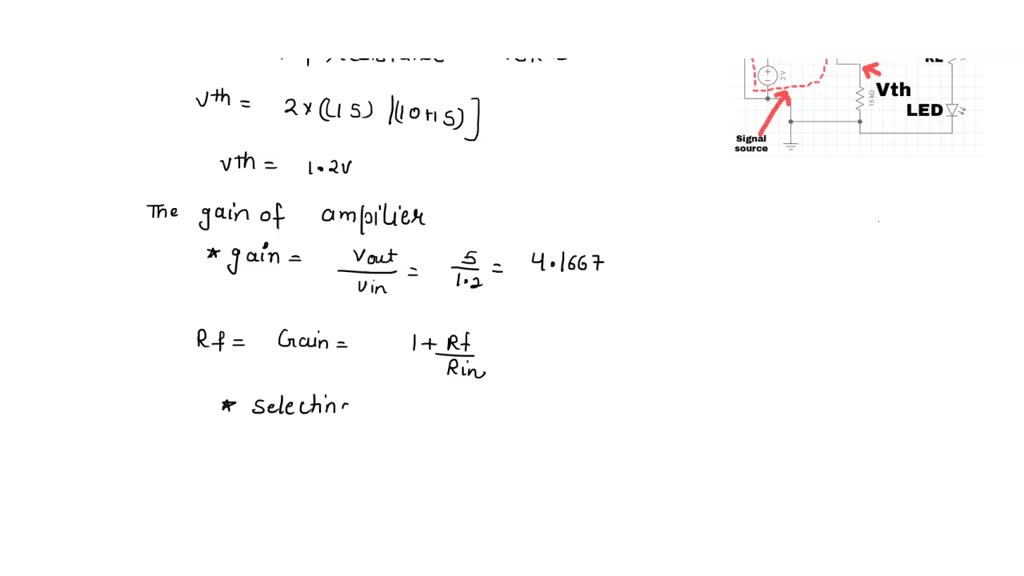 Vth = 2 x (15) / (10+15)]
Vth = 1.2V
The gain of ampilier
* gain = Vout / Vin = 5 / 1.2 = 4.1667
Rf = Gain = 1 + Rf / Rin
* selectin
2V
15kΩ
Vth
LED
Signal
source